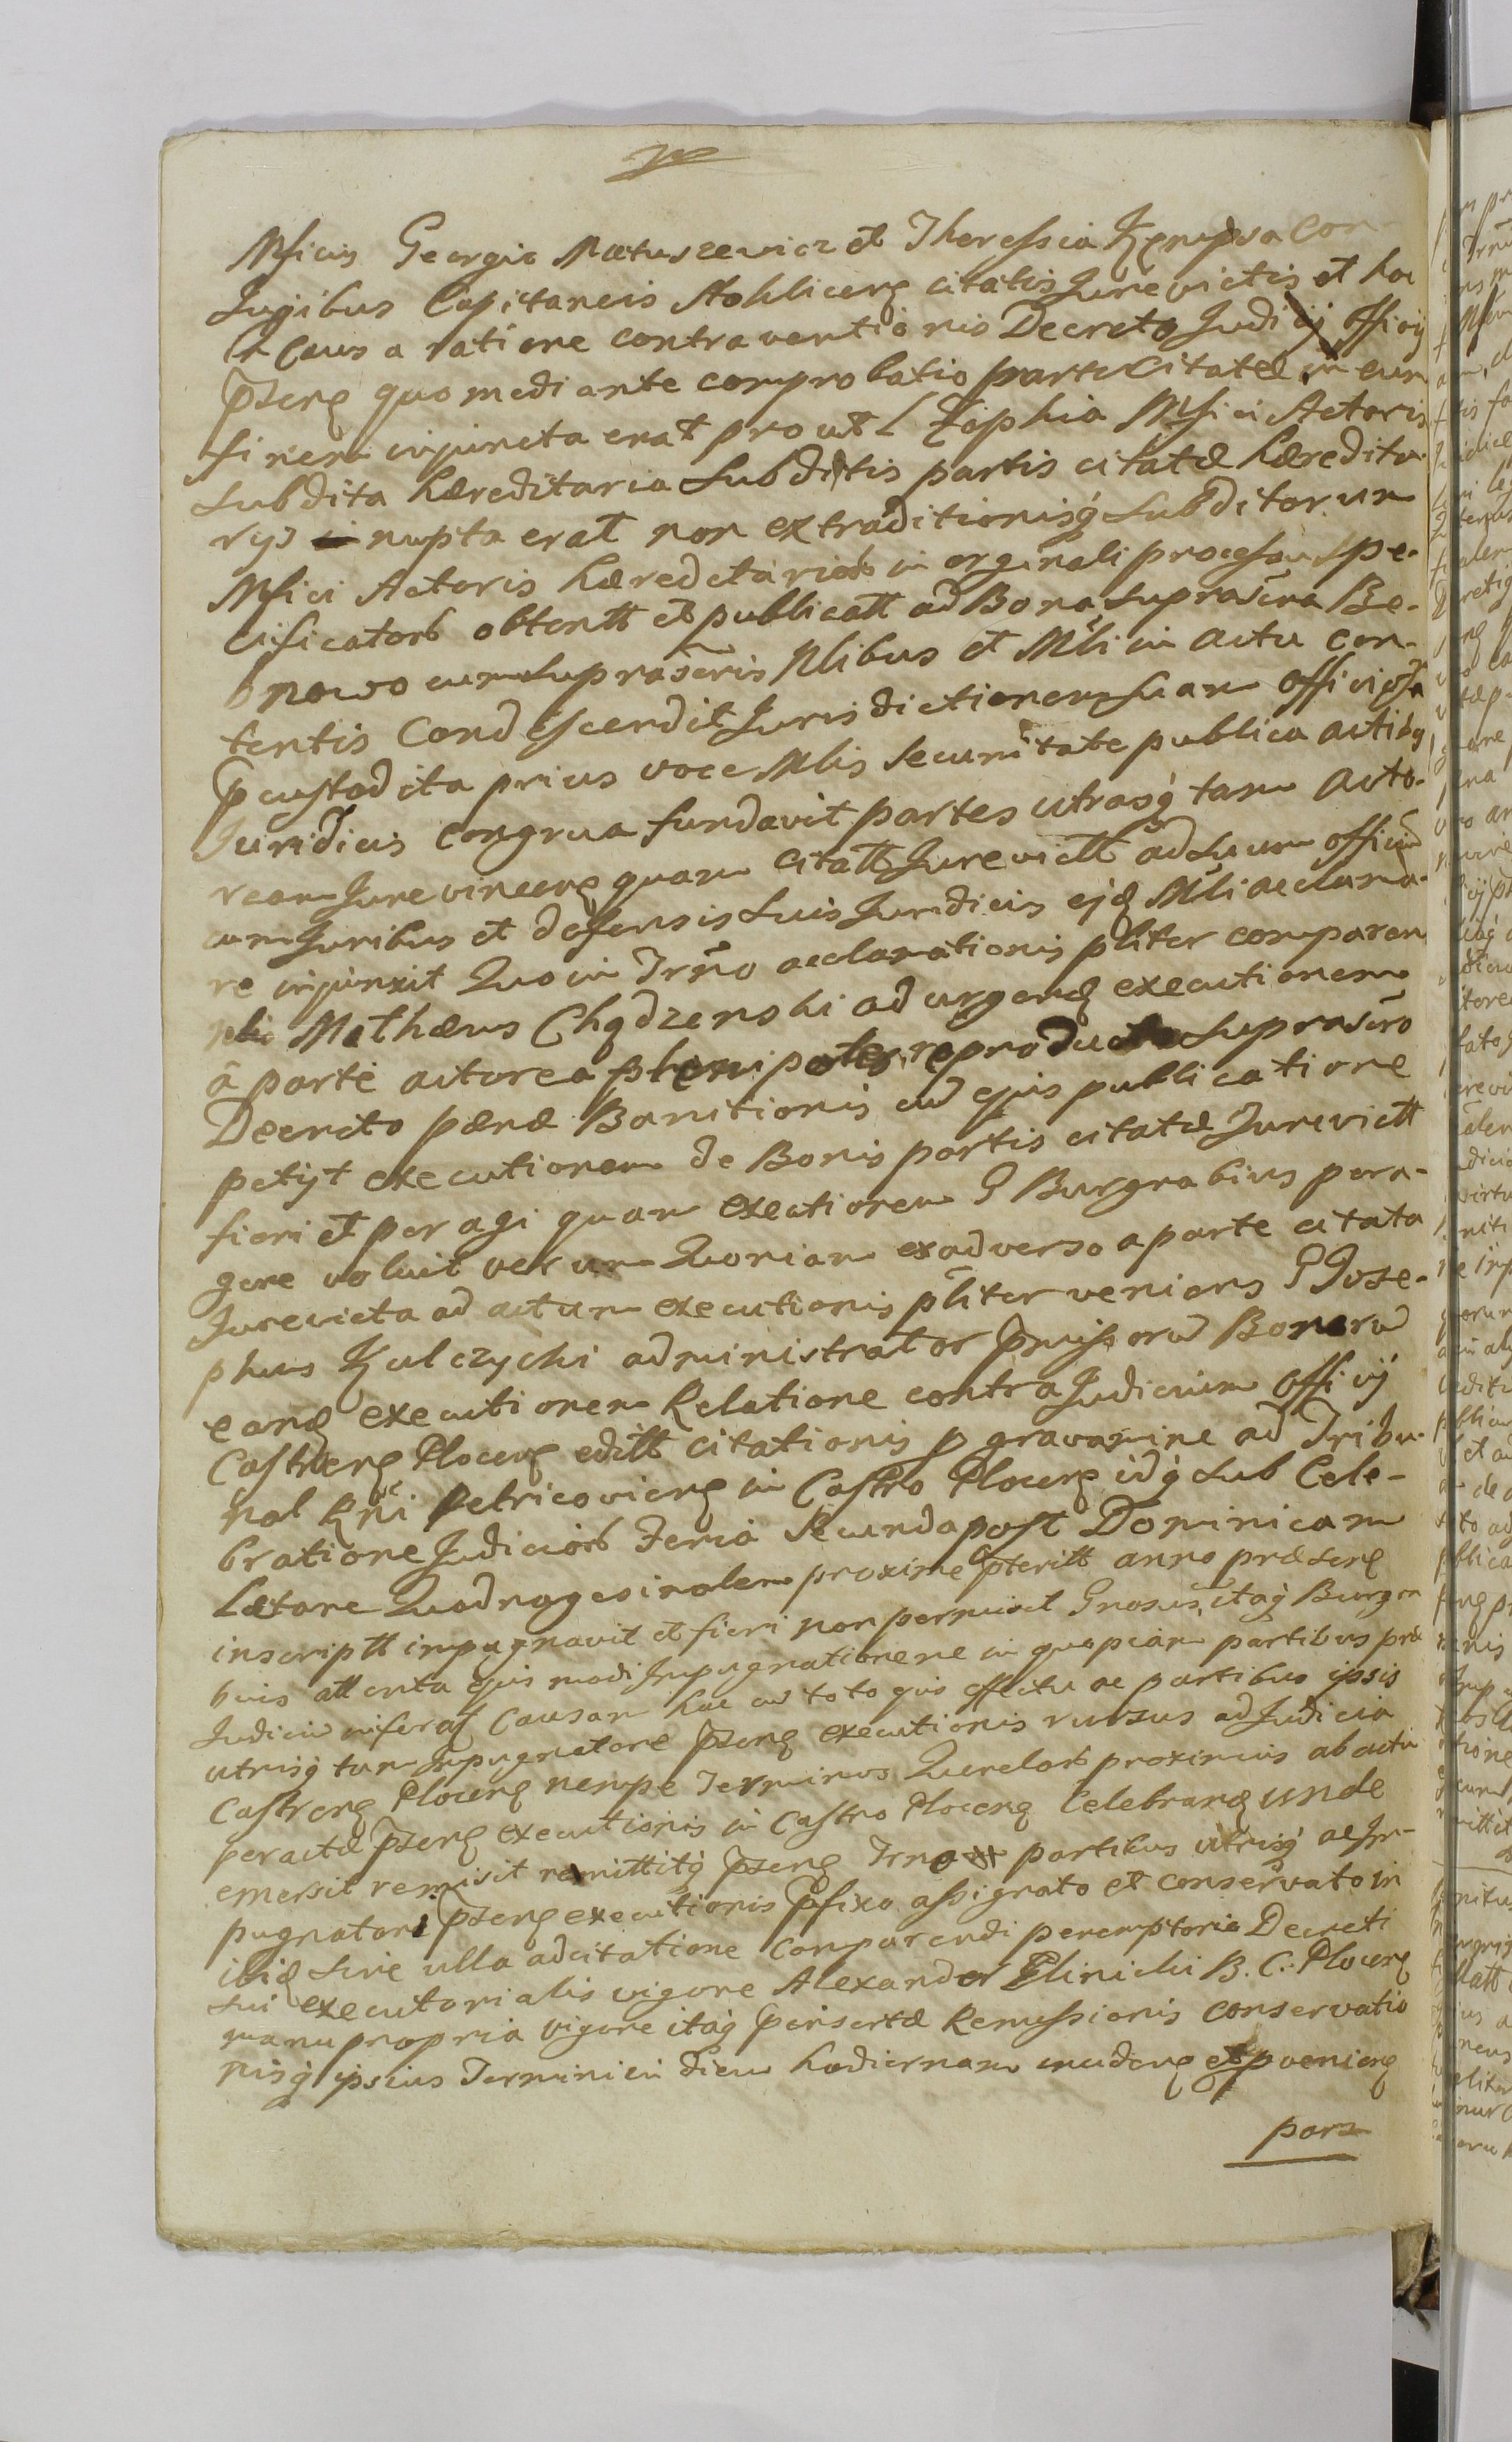 Mficis Georgio Matuszewicz et Theressia Con
Iugibus Capitaneis Stokliceń citatis Jurevictis et hoc
Ex Causa ratione contraventionis Decreto Judicij Officij
p̃zenẽ quo mediante comprobatio parti Citatæ in eum
finem injuncta erat prout L Zophia Mfici Actoris
subdita hæreditaria Subditis partis citatæ hæredita
rys nupta erat non extraditionisq́ Subditorum
Mfici Actoris hæreditariorb in orginali processu spe-
cificatorb obtentt et publicatt ad Bona suprascra Be-
bnowo cum suprascris Nlibus et Mli in actu con-
tentis Condescendit Jurisdictionem suam officiosa
p̃custodita prius voce Mlis securitate publica actibq
Juridicis congrua fundavit partes utrasq́ tam acto-
ream Jure vincenẽ quam citatt Jurevictt ad suum officiũ
cum Juribus et defensis suis Juridicis ejæ Mli acclama-
re injunxit Quo in Trño acclamationis pliter comparen
Nlis Mathæus Chądzenski ad urgenẽ executionem
à parte actorea plenipotes, reproducto suprascro
Decreto pænæ Banitionis cũ ejus publicatione
petijt executionem de Bonis partis citatæ Jurevictt
fieri et peragi quam exeutionem G Burgrabius pera-
gere voluit verum Quoniam exadverso a parte citata
Jurevicta ad actum executionis pliter veniens G Jose-
phus Kulczycki administrator p̃missorũ Bonorũ
eanẽ executionem Relatione contra Judicium Officij
Castrenẽ Plocenẽ editt citationis p gravamine ad Tribu-
nal Rñi Petricovienẽ in Castro Plocenẽ idq́ sub Cele-
bratione Judiciorb Feria Secunda post Dominicam
Lætare Quadragesimalem proxime p̃teritt anno præsenẽ
inscriptt impugnavit et fieri non permisit Gnosus, itaq́ Burgra
bius attenta ejus modi Impugnatione ne in quopiam partibus præ
Judiciũ inferat Causam hac cũ toto ejus effectu ac partibus ipsis
utrisq́ tum Impugnatore p̃zenẽ executionis rursus ad Judicia
Castrenẽ Plocenẽ nempe Terminos Querelarb proximius ab actu
peractæ p̃zenẽ executionis in Castro Plocenẽ Celebranẽ unde
emersit remisit remittitq́ p̃zenẽ Trno partibus utrisq́ ac Im-
pugnatori p̃zenẽ executionis p̃fixo assignato et conservato in
ibiæ sine ulla adcitatione Comparendi peremptorie Decreti
sui executorialis vigore Alexander Glinicki B. C: Plocenẽ
manu propria vigore itaq́ p̃insertæ Remissionis conservatio
nisq́ ipsius Termini in diem hodiernam incidenẽ et p venienẽ
pars